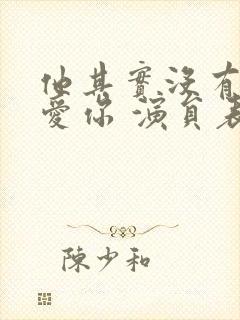 他其實沒有
愛你 演員表
陳少和